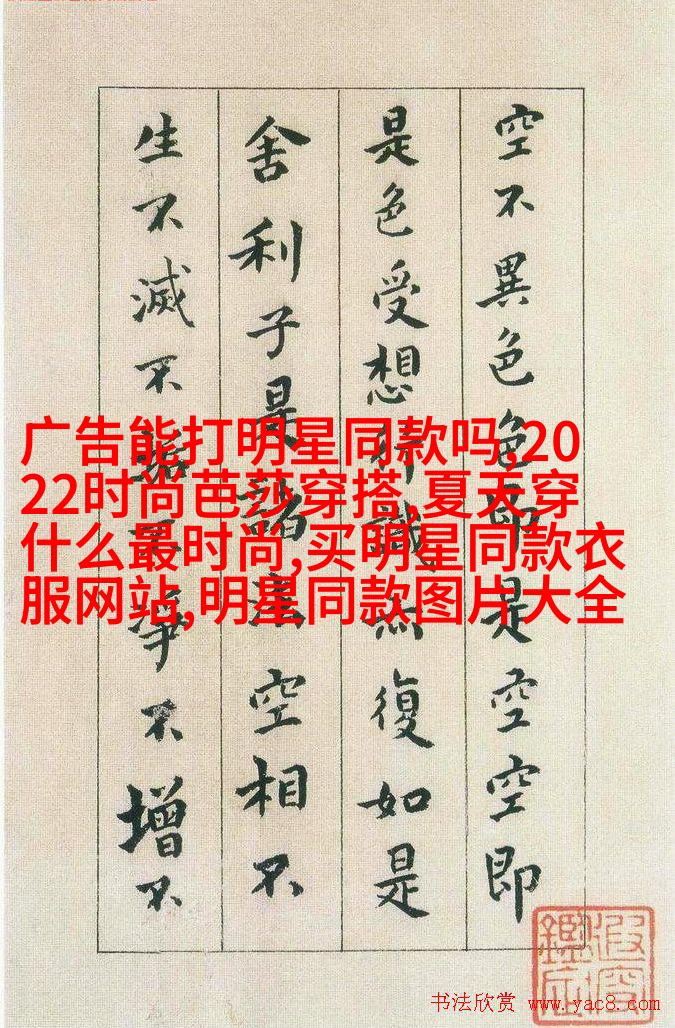 空不異色色即是空空即
是色受想行識亦復如是
舍利子是諸法空相不
生不滅不垢不淨不增不
广告能打明星同款吗,20
22时尚芭莎穿搭,夏天穿
什么最时尚,买明星同款衣
服网站,明星同款图片大全
书法欣赏 www.yac8.com